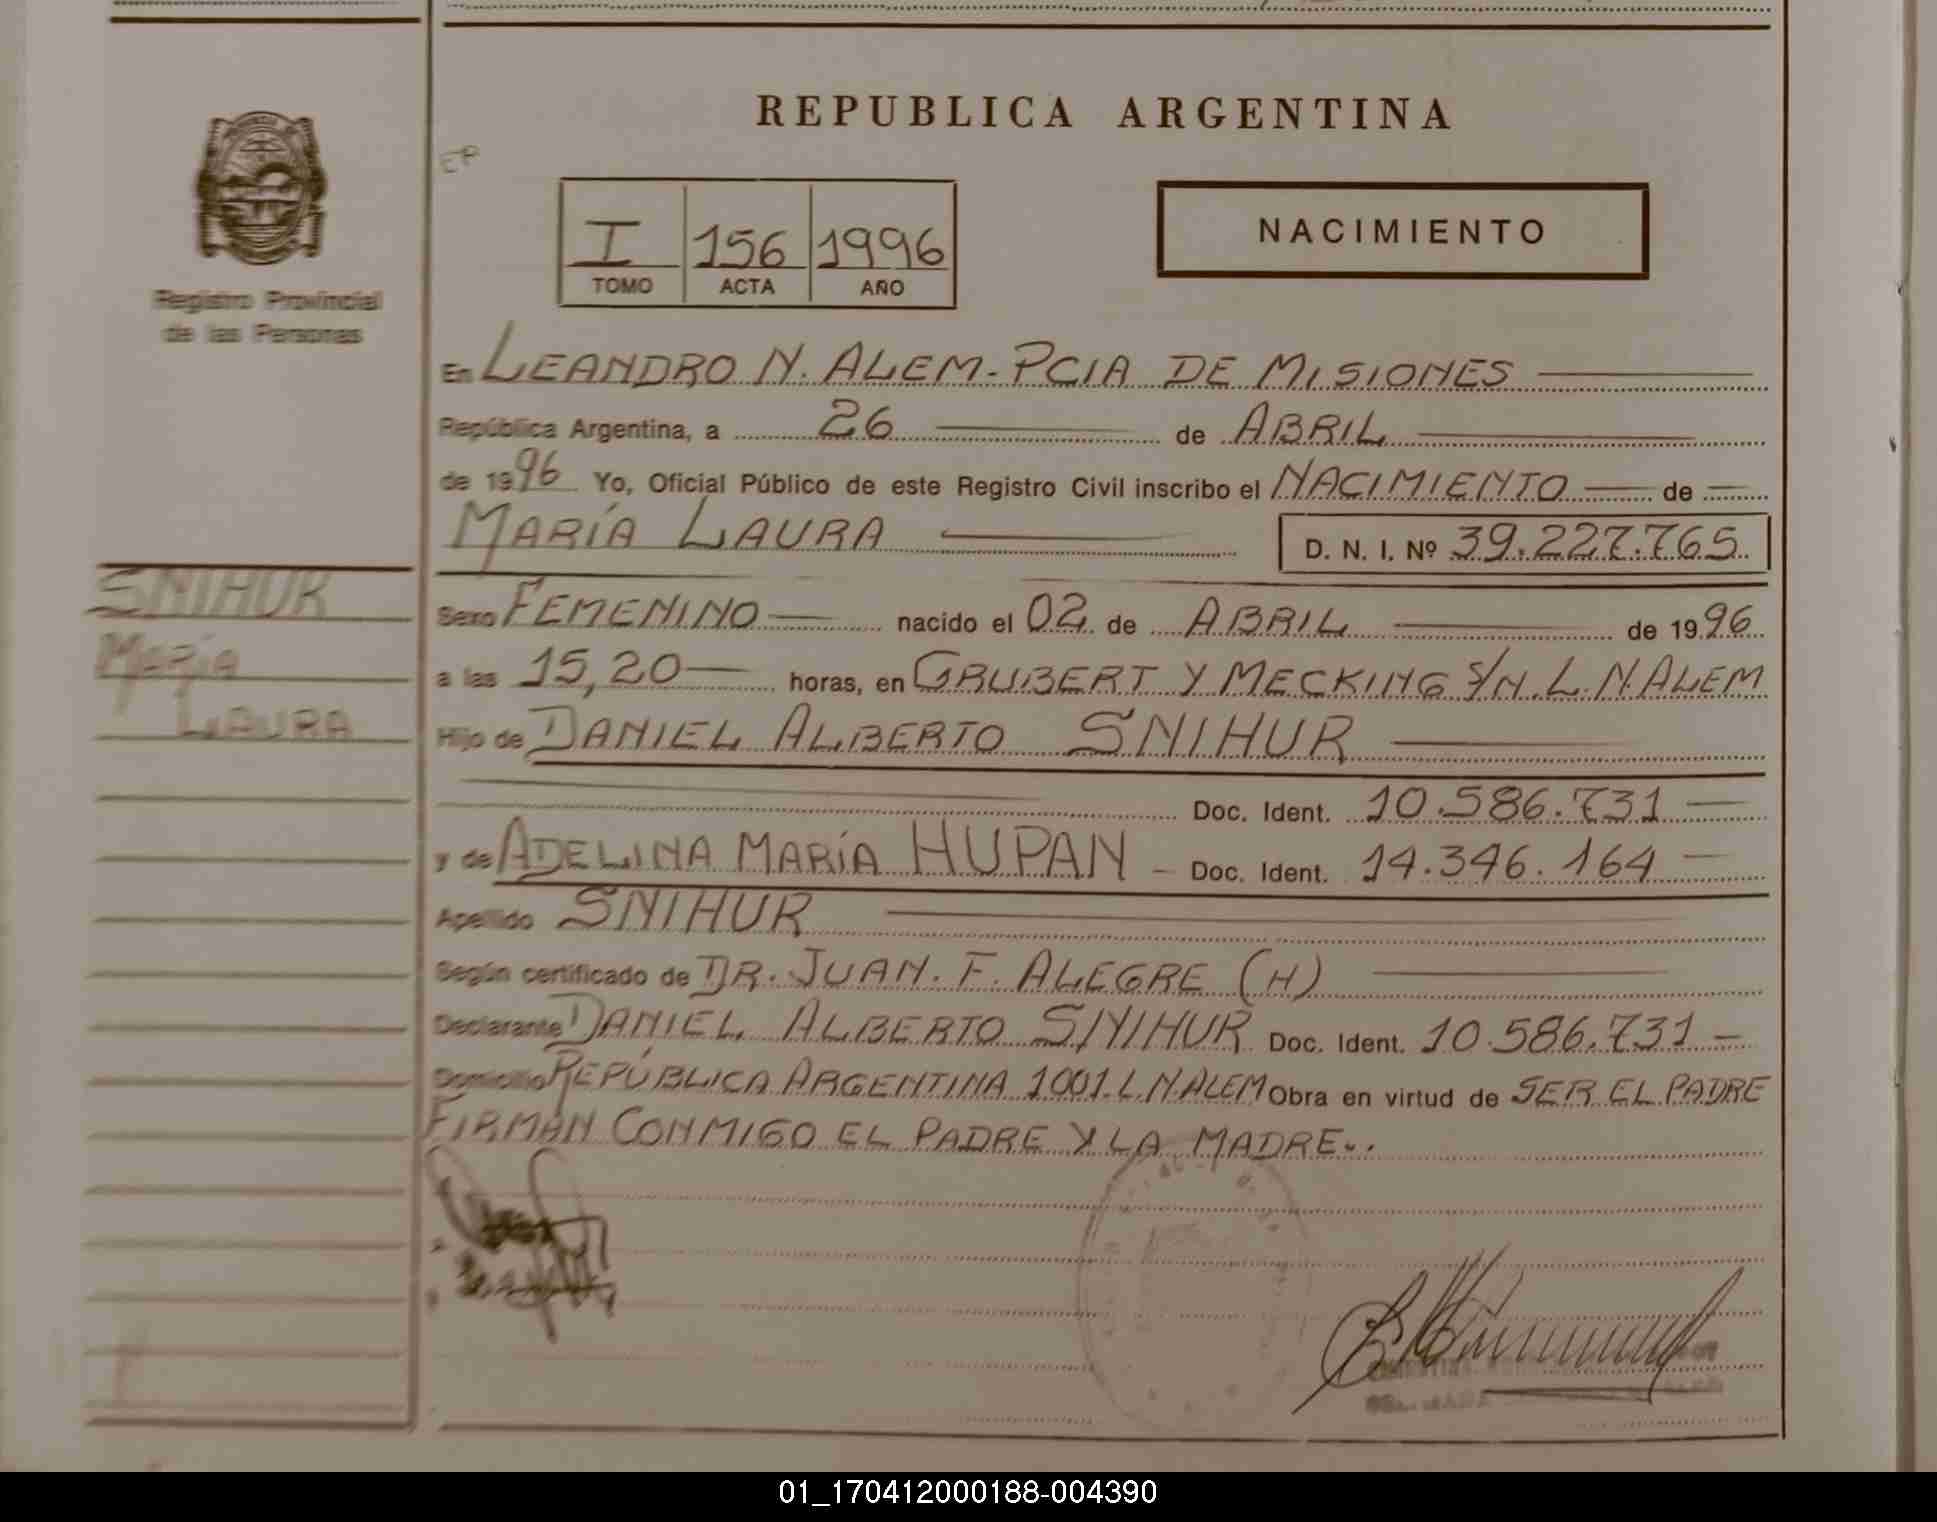 REPUBLICA ARGENTINA
EP
I 156 1996
TOMO ACTA AÑO
NACIMIENTO
Registro Provincial
de las Personas
En LEANDRO N. ALEM - PCIA DE MISIONES
República Argentina, a 26 de ABRIL
de 1996 Yo, Oficial Público de este Registro Civil inscribo el NACIMIENTO de
MARÍA LAURA D. N. I. Nº 39.227.765
SNIHUR
MARÍA
LAURA
Sexo FEMENINO nacido el 02 de ABRIL de 1996
a las 15,20 horas, en GRUBERT Y MECKING S/N. L. N. ALEM
Hijo de DANIEL ALBERTO SNIHUR
Doc. Ident. 10.586.731
y de ADELINA MARÍA HUPAN - Doc. Ident. 14.346.164
Apellido SNIHUR
Según certificado de DR. JUAN. F. ALEGRE (H)
Declarante DANIEL ALBERTO SNIHUR Doc. Ident. 10.586.731
Domicilio REPÚBLICA ARGENTINA 1001. L. N. ALEM Obra en virtud de SER EL PADRE
FIRMAN CONMIGO EL PADRE Y LA MADRE..
01_170412000188-004390